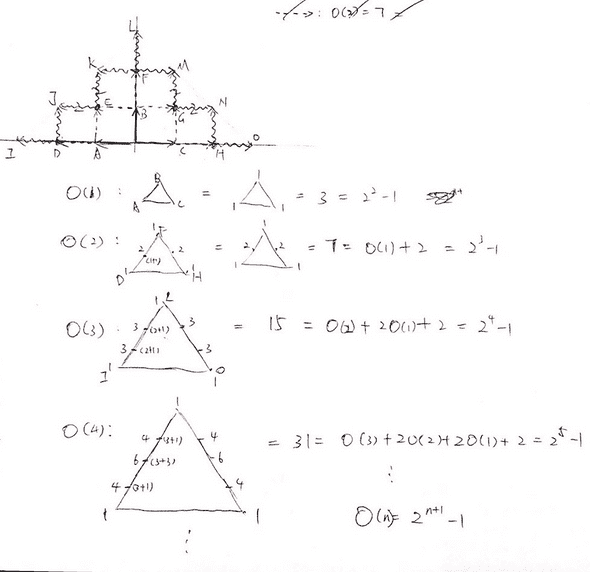 ---->: O(2)=7
L
K F M
J E B G N
I D A C H O
O(1): B A C = 1 1 1 = 3 = 2²-1
O(2): 1 F 2 2 (1+1) D 1 1 H = 1 2 2 1 1 = 7 = O(1)+2 = 2³-1
O(3): 1 L 3 (2+1) 3 3 (2+1) 3 I 1 O 1 = 15 = O(2)+2O(1)+2 = 2⁴-1
O(4): 1 4 (3+1) 4 6 (3+3) 6 4 (3+1) 4 1 1 = 31 = O(3)+2O(2)+2O(1)+2 = 2⁵-1
⋮
O(n)= 2ⁿ⁺¹-1
⋮